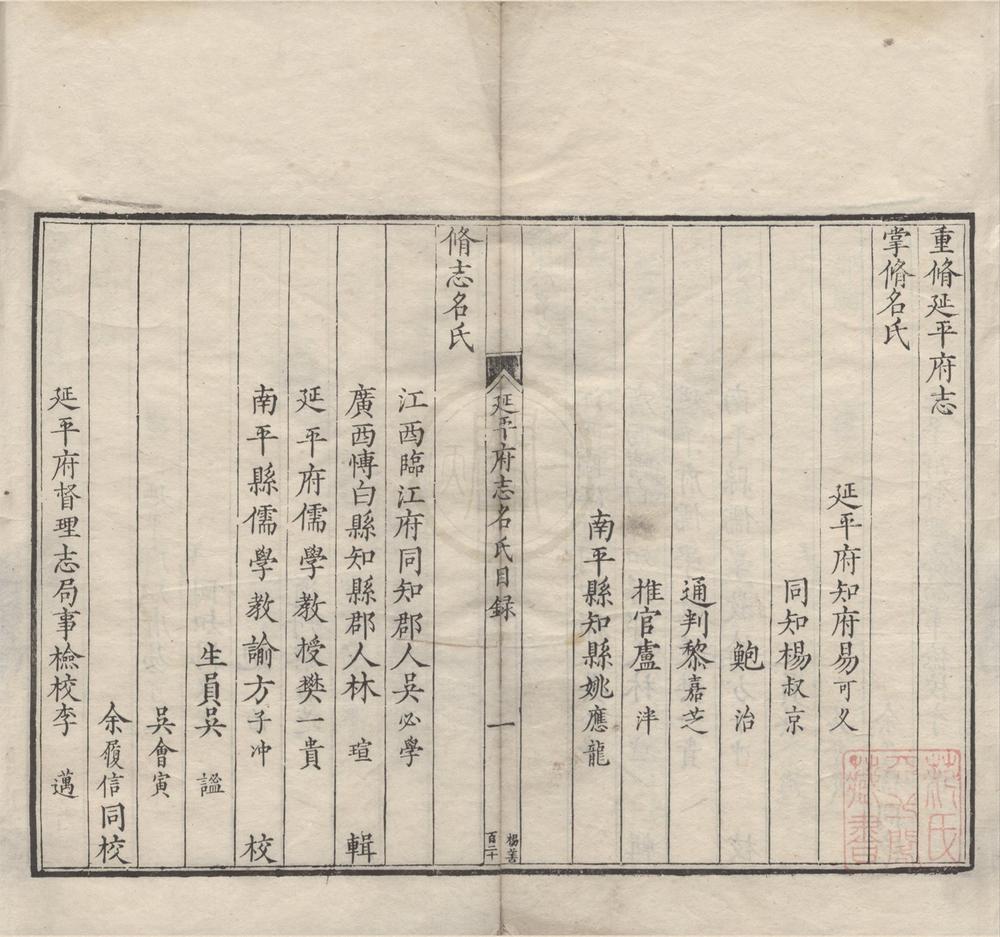 重脩延平府志
掌脩名氏
延平府知府易可久
同知楊叔京
鮑治
通判黎嘉芝
推官盧泮
南平縣知縣姚應龍
延平府志名氏目録
一
楊善
百二十
脩志名氏
江西臨江府同知郡人吳必學
廣西博白縣知縣郡人林瑄輯
延平府儒學教授樊一貴
南平縣儒學教諭方子冲校
生員吳謐
吳會寅
余履信同校
延平府督理志局事檢校李邁